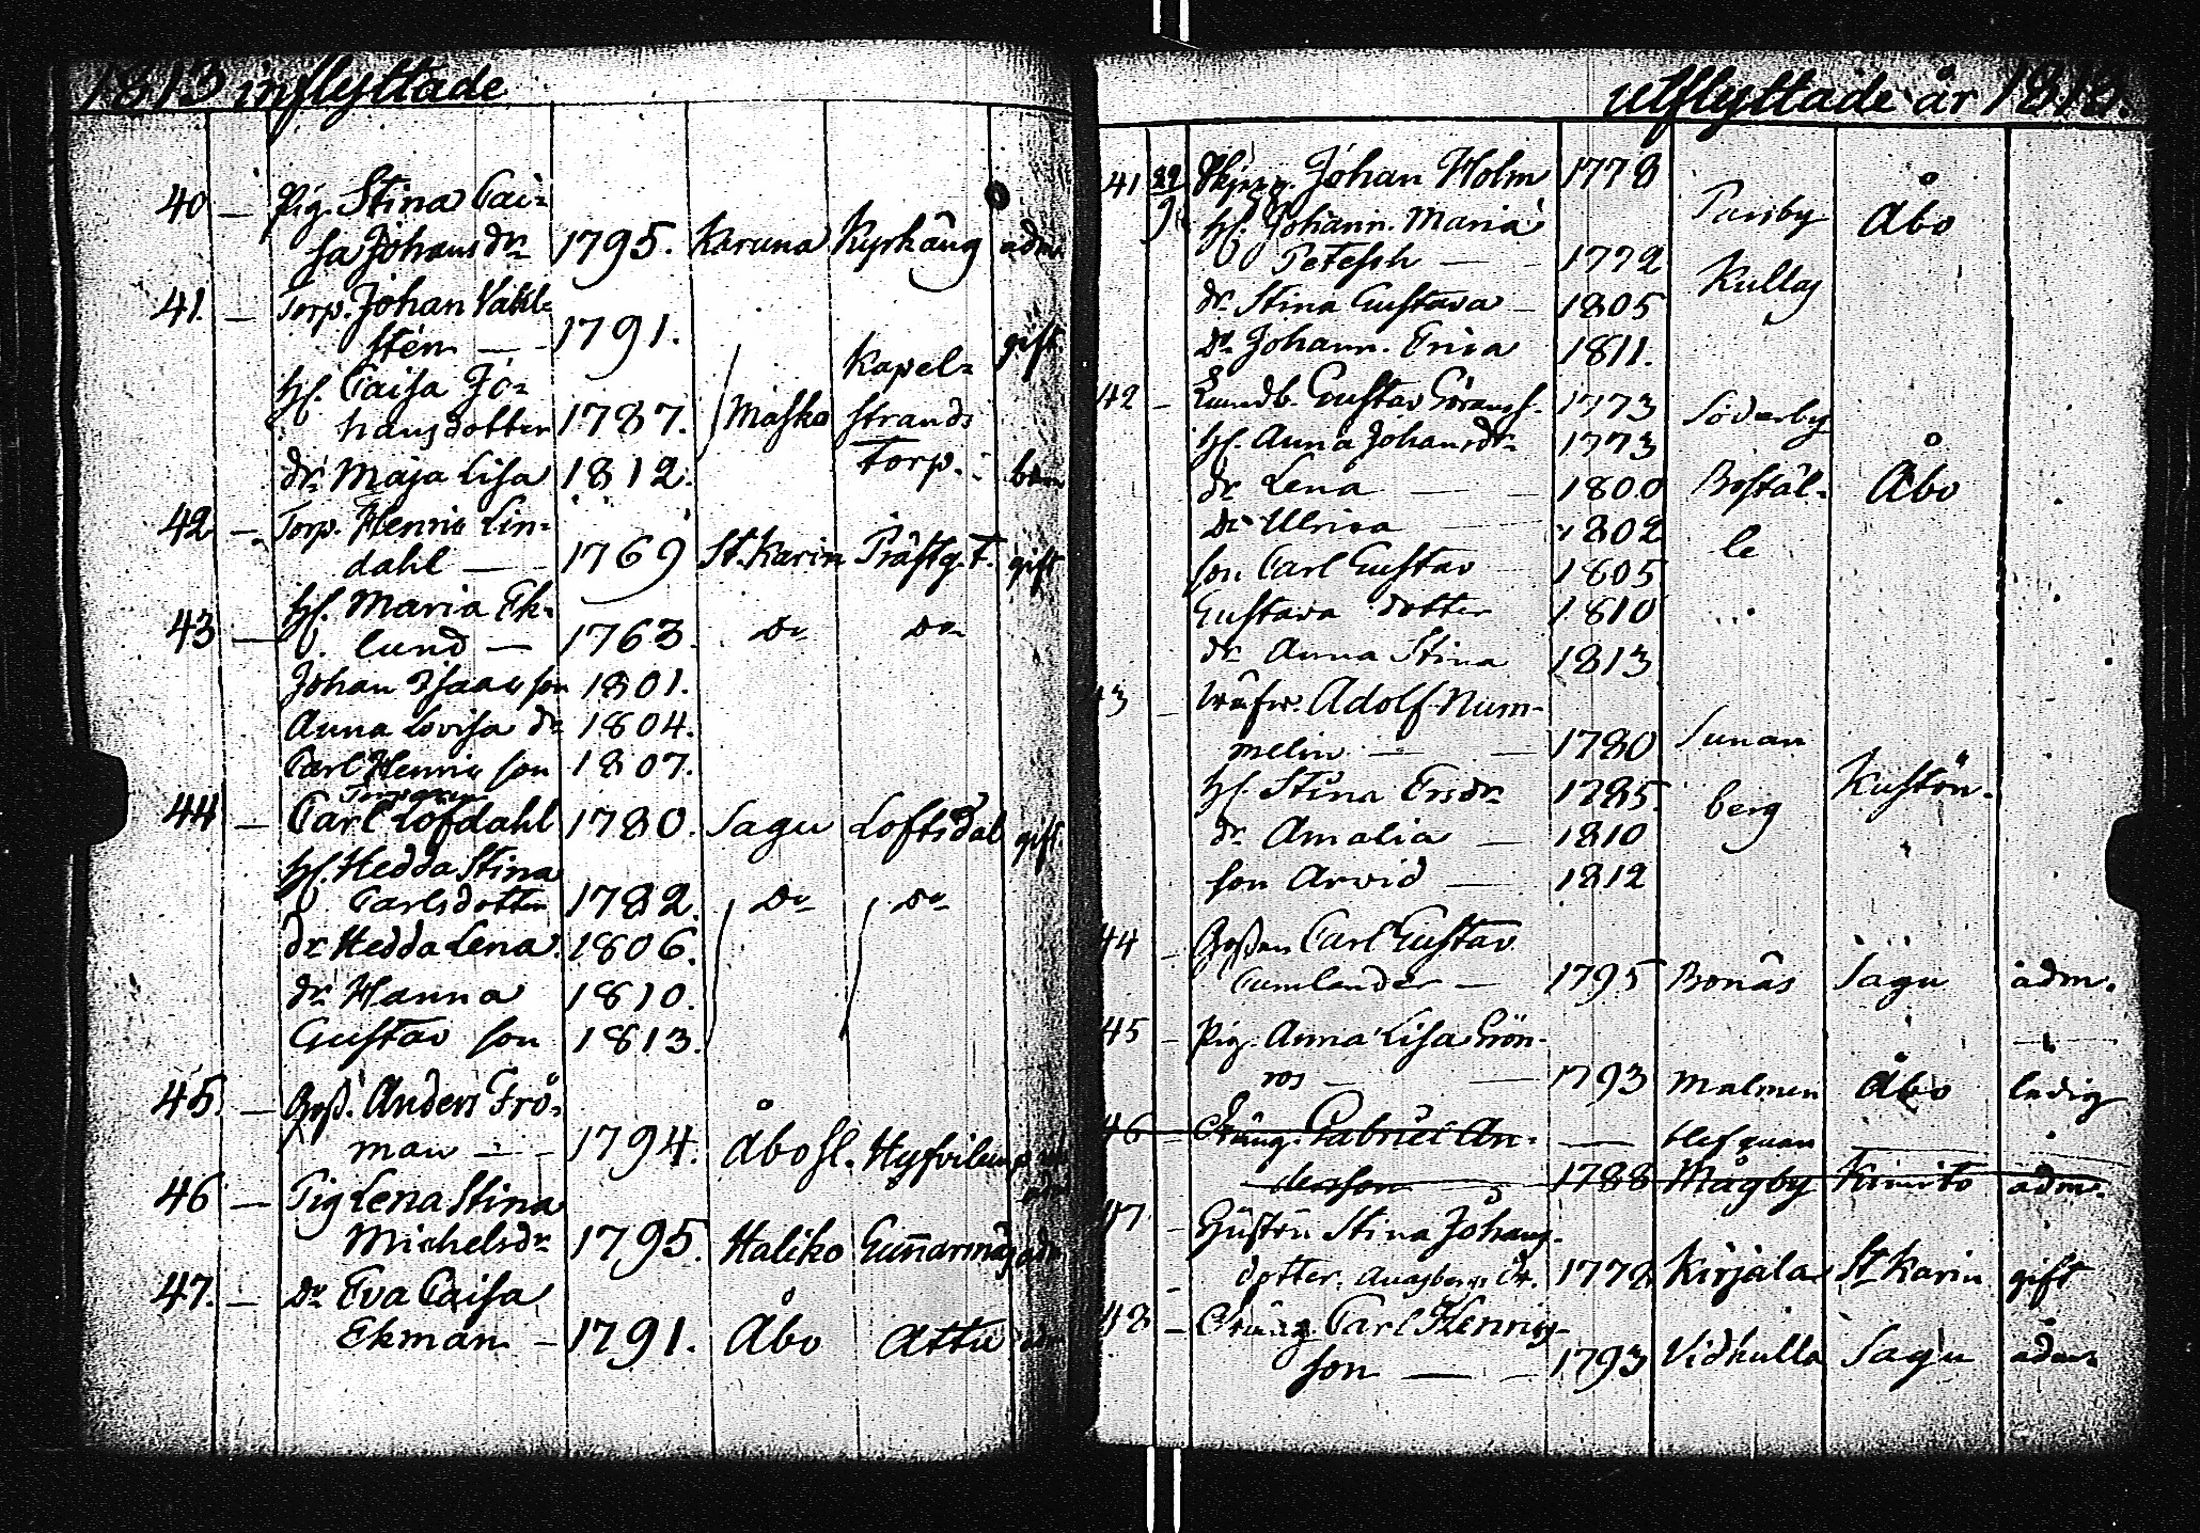 1813 inflyttade
40 — Pig. Stina Cai=
sa Johansdr 1795. Karuna Kyrkäng adm.
41. — Torp. Johan Vahl=
stén — 1791. gift
Hu. Caisa Jo=
hansdotter 1787. Masko Kapel=
strands
Torp.
dr. Maja Lisa 1812. barn
42 — Torp. Henric Lin=
dahl — 1769 St. Karin Prästg. T. gift
43 — Hu. Maria Ek=
lund — 1763. Do Do
Johan Isaac son 1801.
Anna Lovisa dr 1804.
Carl Henric son 1807.
Torparen
44 — Carl Lofdahl 1780. Sagu Loftsdal gift
Hu. Hedda Stina
Carlsdotter 1782. Do Do
dr Hedda Lena 1806.
dr Hanna 1810.
Gustav son 1813.
45. — Goss. Anders Frö=
man — 1794. Åbo sl.
46 — Pig Lena Stina
Michelsdr 1795. Haliko Gunnarnäs adm
47. — Do Eva Caisa
Ekman — 1791. Åbo Attu
utflyttade år 1813.
41 29/9 Johan Holm 1778
Hu. Johann. Maria Parsby Åbo
— 1772
dr. Stina Gustava — 1805 Kulla
Do Johann. Erica 1811.
42 — Lundb. Gustav Göranss. 1773 Söderby
Hu. Anna Johansdr 1773
dr Lena — 1800 Bostäl= Åbo
Do Ulrica 1802 le
son Carl Gustav 1805
Gustava dotter 1810
dr Anna Stina 1813
43 — Adolf Num-
melin — 1780 Sunan
Hu. Stina Ersdr 1785. berg Kustön.
dr. Amalia — 1810
son Arvid — 1812
44 — Gossen Carl Gustav
Cumlander — 1795 Bonäs Sagu adm.
45 — Pig. Anna Lisa Grön-
ros — 1793 Malmen Åbo ledig
46 — Dräng. Gabriel An- —
dersson — 1788 Mågby Kimito adm.
47 — Stina Johans-
dotter. 1772 Kirjala St Karin gift
48 — Dräng. Carl Henrics-
son — 1793 Vidkulla Sagu adm.